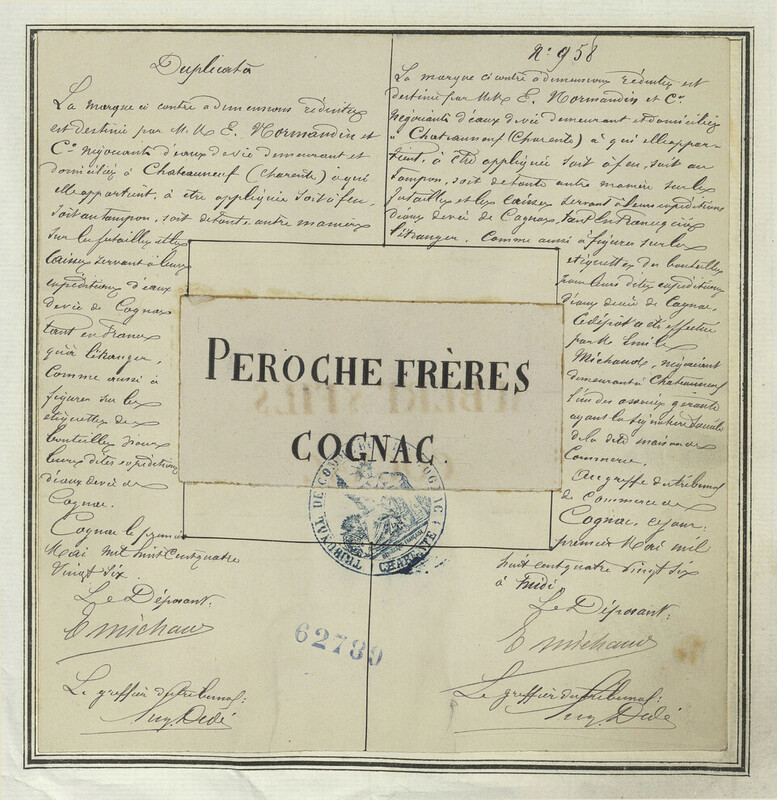 Duplicata
La marque ci contre a dimensions réduites
est destinée par M.M. E. Normandin et
Cie négociants d'eaux de vie demeurant et
domiciliés à Chateauneuf (Charente) à qui
elle appartient, à être appliquée soit à feu,
soit au tampon, soit de toute autre manière
sur les futailles et les
caisses servant à leurs
expéditions d'eaux
de vie de Cognac
tant en France
qu'à l'étranger.
Comme aussi à
figurer sur les
étiquettes des
bouteilles pour
leurs dites expéditions
d'eaux de vie de
Cognac.
Cognac le premier
Mai mil huit cent quatre
vingt six.
Le Déposant.
E Michaud
Le greffier du tribunal:
Dédé
No 958
La marque ci contre a dimensions réduites est
destinée par M.M. E. Normandin et Cie
Négociants d'eaux de vie demeurant et domiciliés
à Chateauneuf (Charente) à qui elle appar-
tient, à être appliquée soit à feu, soit au
tampon, soit de toute autre manière sur les
futailles et les caisses servant à leurs expéditions
d'eaux de vie de Cognac, tant en France qu'à
l'étranger. Comme aussi à figurer sur les
étiquettes des bouteilles
pour leurs dites expéditions
d'eaux de vie de Cognac.
Ce dépôt a été effectué
par M. Emile
Michaud, négociant
demeurant à Chateauneuf
l'un des associés gérants
ayant la signature sociale
de la dite maison de
Commerce.
Au greffe du tribunal
de Commerce de
Cognac, ce jour
premier Mai mil
huit cent quatre vingt six
à midi
Le Déposant:
E Michaud
Le greffier du tribunal:
Dédé
PEROCHE FRÈRES
COGNAC.
TRIBUNAL DE COMMERCE COGNAC
CHARENTE
62739